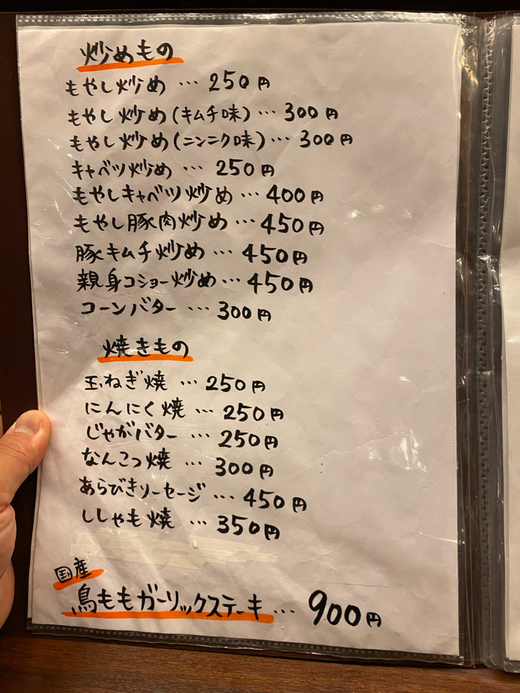 炒めもの
もやし炒め … 250円
もやし炒め(キムチ味) … 300円
もやし炒め(ニンニク味) … 300円
キャベツ炒め … 250円
もやしキャベツ炒め … 400円
もやし豚肉炒め … 450円
豚キムチ炒め … 450円
親身コショー炒め … 450円
コーンバター … 300円
焼きもの
玉ねぎ焼 … 250円
にんにく焼 … 250円
じゃがバター … 250円
なんこつ焼 … 300円
あらびきソーセージ … 450円
ししゃも焼 … 350円
国産
鳥ももガーリックステーキ … 900円